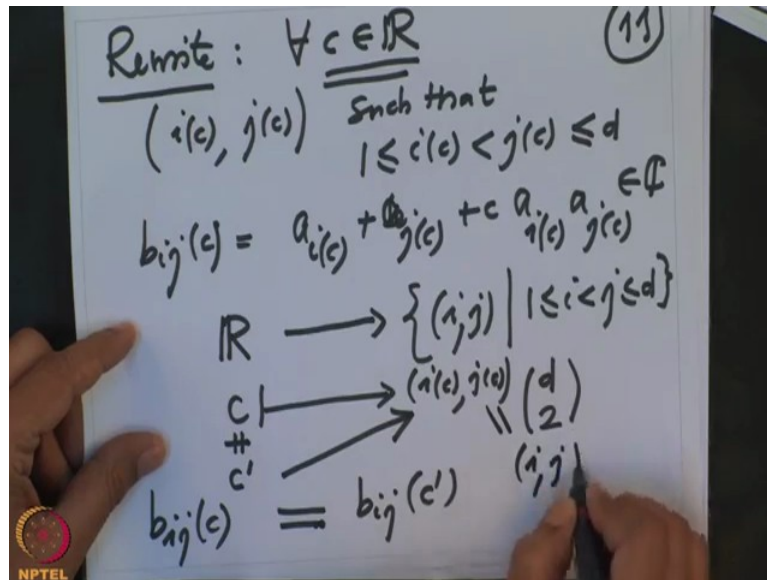 Rewrite : ∀ c ∈ ℝ (11)
(i(c), j(c)) such that
1 ≤ i(c) < j(c) ≤ d
b_{ij}(c) = a_{i(c)} + a_{j(c)} + c a_{i(c)} a_{j(c)} ∈ ℂ
ℝ ⟶ {(i,j) | 1 ≤ i < j ≤ d}
c ⟼ (i(c), j(c)) (d 2)
≠ ∥
c' (i,j
b_{ij}(c) = b_{ij}(c')
NPTEL